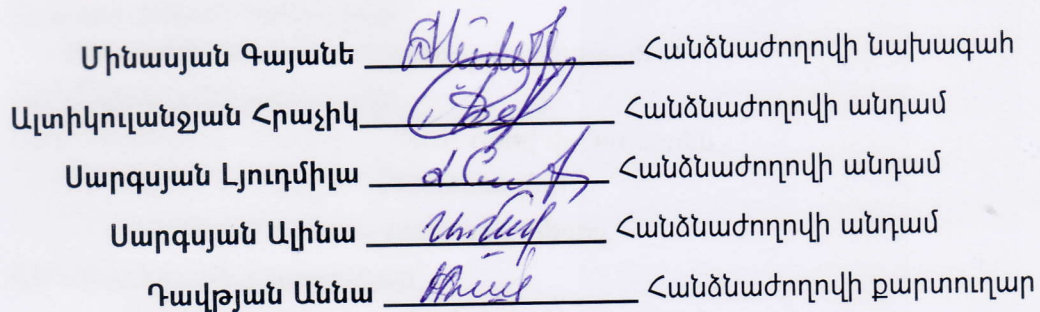 Մինասյան Գայանե Հանձնաժողովի նախագահ
Ալտիկուլանջյան Հրաչիկ Հանձնաժողովի անդամ
Սարգսյան Լյուդմիլա Հանձնաժողովի անդամ
Սարգսյան Ալինա Հանձնաժողովի անդամ
Դավթյան Աննա Հանձնաժողովի քարտուղար